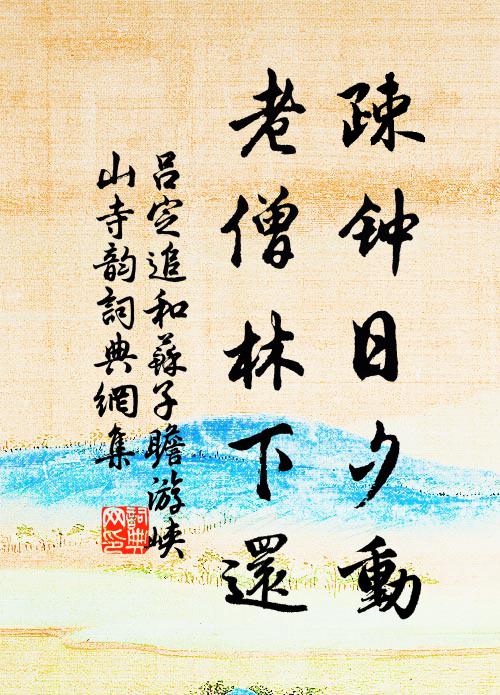 疎钟日夕動
老僧林下還
吕定追和蘇子瞻游峡
山寺韵詞典網集
詞典
网印